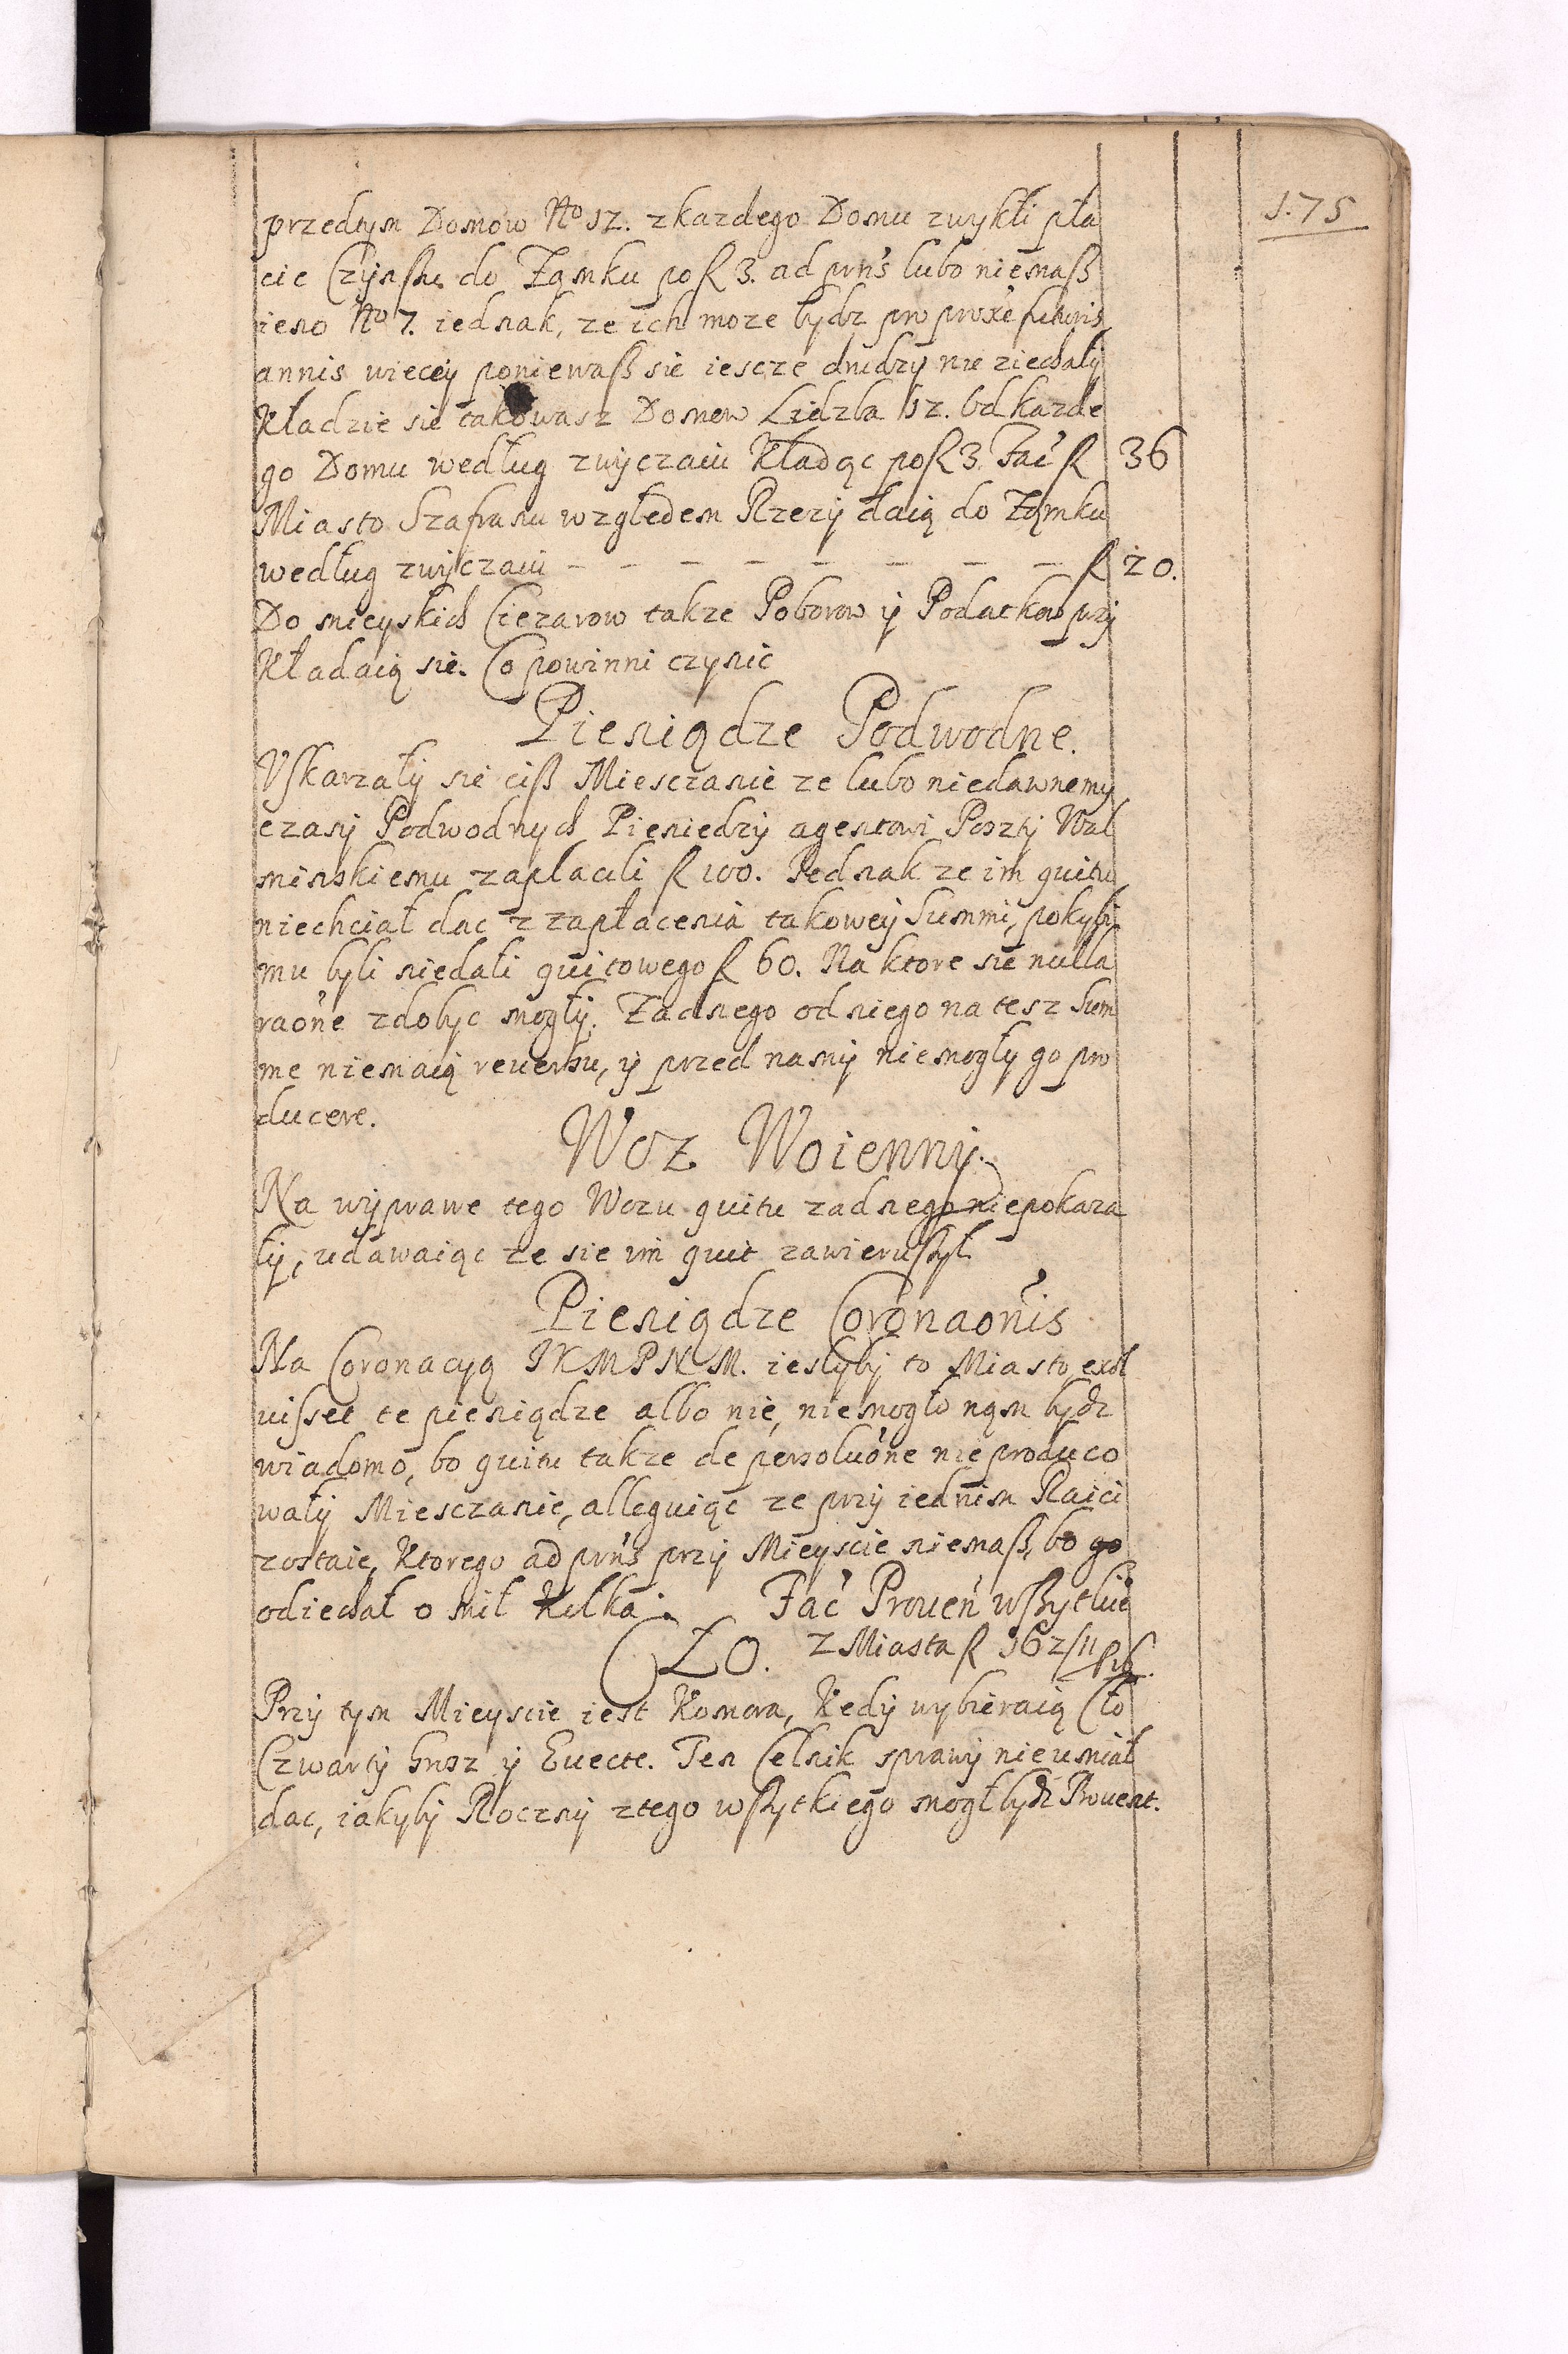 175
przedtym Domow No 12. z kazdego Domu zwykli pła
cic Czynszu do Ząmku po fl 3. ad prns lubo niemasz
ieno No 7. iednak, ze ich moze bydz pro proxe futuris
annis wiecey poniewasz sie iescze drudzy nie ziechały
Kładzie sie takowasz Domow Lidzba 12. Od kazde
go Domu według zwyczaiu Kładąc po fl 3. Fac fl 36
Miasto Szafranu względem Rzezy daią do Ząmku
według zwyczaiu - - - - - - - - - fl 20.
Do mieyskich Ciezarow takze Poborow y Podatkow przy
Kładaią sie. Co powinni czynic
Pieniądze Podwodne.
Vskarzały sie cisz Miesczanie ze lubo niedawnemy
czasy Podwodnych Pieniedzy agentowi Poszty Wal
minskiemu zaplacili fl 100. Jednak ze im quitu
niechciał dac z zapłacenia takowey Summi, pokyby
mu byli niedali quitowego fl 60. Na ktore sie nulla
raone zdobyc mogły. Zadnego od niego na tesz Sum
me niemaią reuersu, y przed namy niemogły go pro
ducere.
Woz Woienny.
Na wyprawe tego Wozu quitu zadnego niepokaza
ły, udawaiąc ze sie im quit zawieruszył
Pieniądze Coronaonis
Na Coronacyą JKMPNM. ieslyby to Miasto exol
uisset te pieniądze albo nie, niemogło nąm bydz
wiadomo, bo quitu takze de persoluone nie produco
wały Miesczanie, alleguiąc ze przy iednim Raici
zostaie, Ktorego ad prns przy Mieyscie niemasz, bo go
odiechał o mil Kilka. Fac Prouen wszytkie
z Miasta fl 162/11
CŁO.
Przy tym Mieyscie iest Komora, Kedy wybieraią Cło
Czwarty Grosz y Euecte. Ten Celnik sprawy nieumiał
dac, iakyby Roczny z tego wszytkiego mogł bydz Prouent.